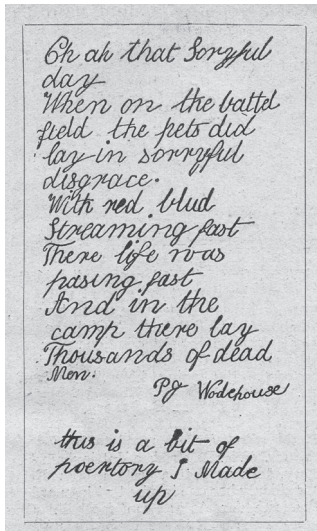 Oh ah that Soryful
day
When on the battel
field the pets did
lay in sorryful
disgrace.
With red blud
Streaming fast
There life was
pasing fast
And in the
camp there lay
Thousands of dead
Men.
PG Wodehouse
this is a bit of
poertory I Made
up